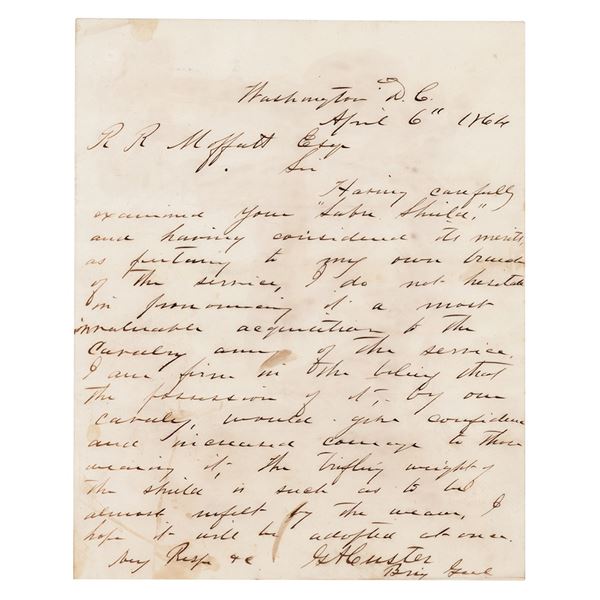 Washington D. C.
April 6" 1864
R R Moffatt Esqr
Sir
Having carefully
examined your "Sabre Shield,"
and having considered its merits,
as pertaining to my own branch
of the service, I do not hesitate
in pronouncing it a most
invaluable acquisition to the
Cavalry arm of the service.
I am firm in the belief that
the possession of it by our
cavalry, would give confidence
and increased courage to those
wearing it, the trifling weight of
the shield is such as to be
almost unfelt by the wearer, I
hope it will be adopted at once.
Very Resp &c GACuster
Brig Genl